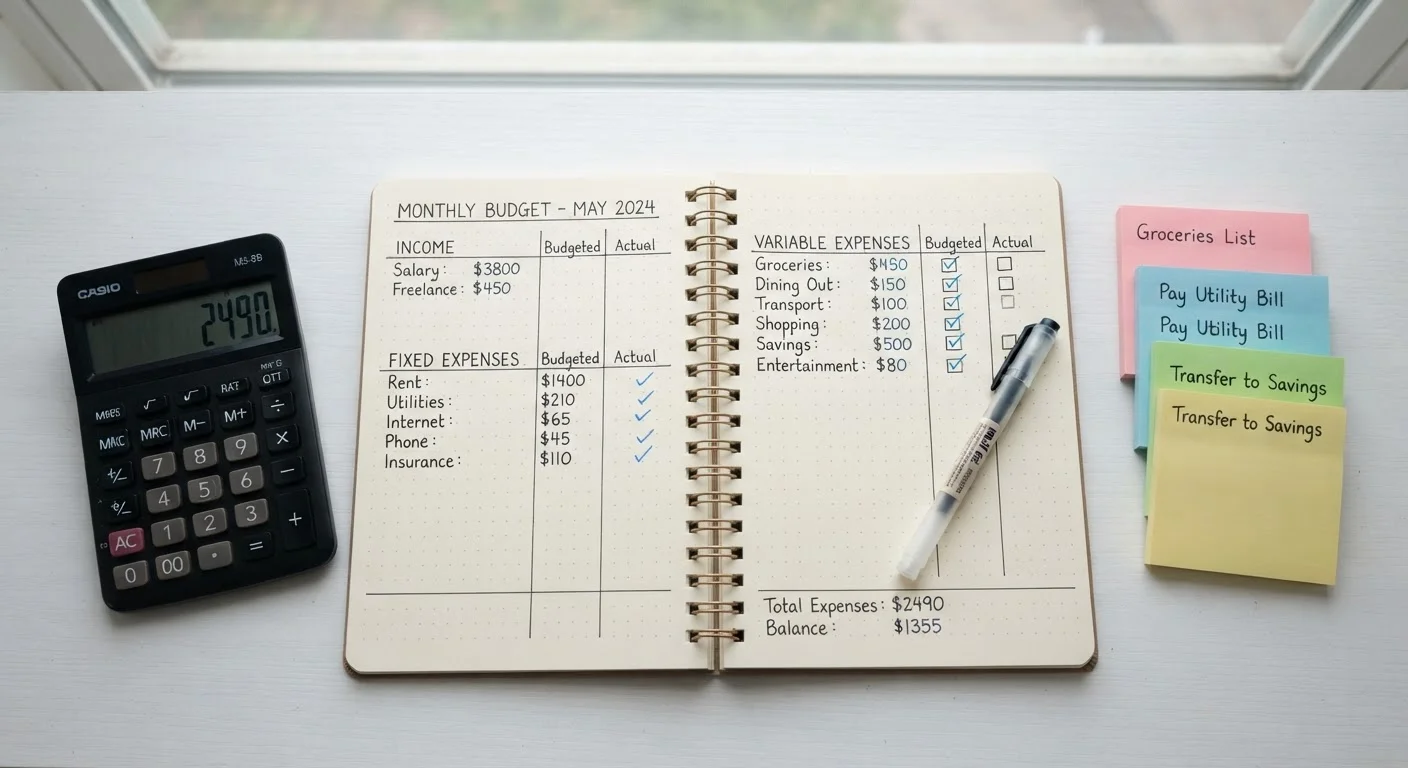 MONTHLY BUDGET - MAY 2024
INCOME Budgeted Actual
Salary: $3800
Freelance: $450
FIXED EXPENSES Budgeted Actual
Rent: $1400
Utilities: $210
Internet: $65
Phone: $45
Insurance: $110
VARIABLE EXPENSES Budgeted Actual
Groceries: $450
Dining Out: $150
Transport: $100
Shopping: $200
Savings: $500
Entertainment: $80
Total Expenses: $2490
Balance: $1355
CASIO
2490
MRC M- M+ ÷
7 8 9 ×
4 5 6 −
AC 1 2 3 +
0 00 · =
Groceries List
Pay Utility Bill
Pay Utility Bill
Transfer to Savings
Transfer to Savings